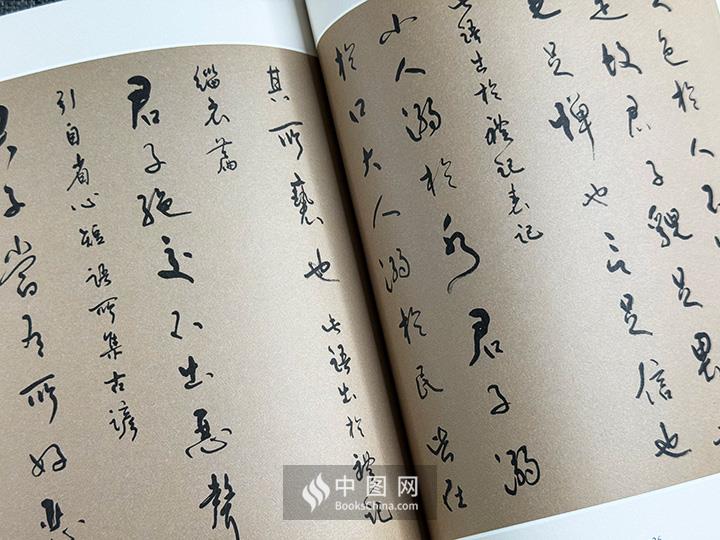 色於人不
是故君子貌足畏
足憚也言足信也
此語出於禮記表記
小人溺於水君子溺
於口大人溺於民皆在
其所褻也此語出於禮記
緇衣篇
君子絕交不出惡聲
引自省心短語所集古諺
君子當有所好惡
中图网
BooksChina.com